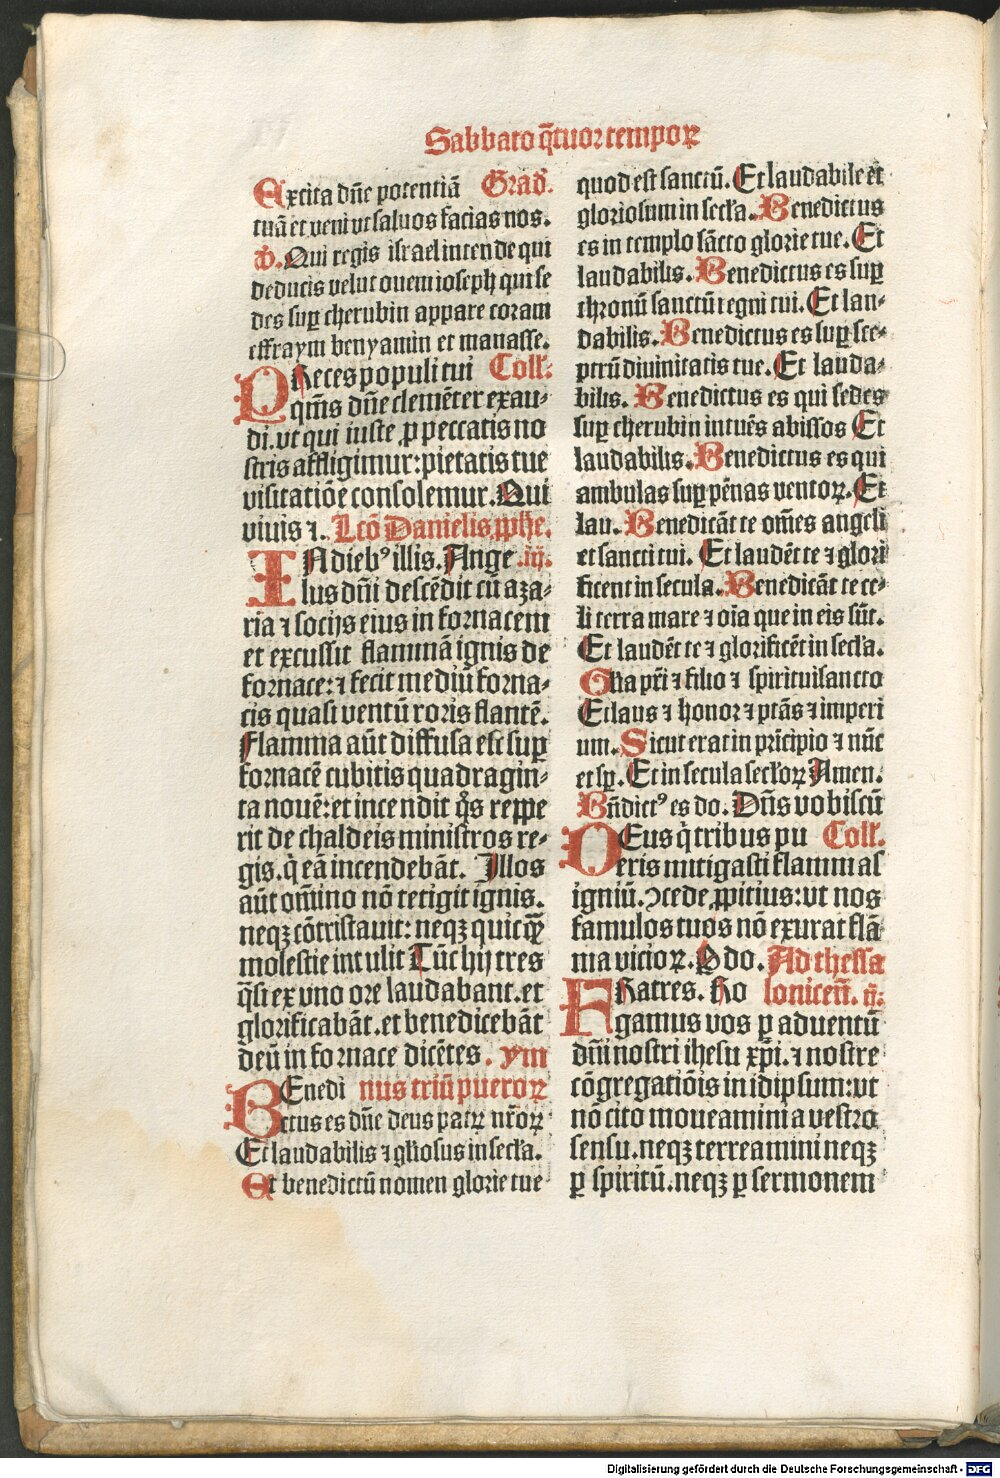 Sabbato q̄tuor tempoꝝ
Excita dn̄e potentiā Grad̄.
tuā et veni vt saluos facias nos.
℣. Qui regis israel intende qui
deducis velut ouem ioseph qui se
des suꝑ cherubin appare coram
effraym benyamin et manasse.
PReces populi tui Coll̄.
qm̄s dn̄e clemēter exau-
di.vt qui iuste ꝓ peccatis no
stris affligimur:pietatis tue
visitatiōe consolemur.Qui
viuis ⁊. Lcō Danielis.ꝓphe.
IN dieb⁹ illis. Ange .iij.
lus dn̄i descēdit cū aza-
ria ⁊ socijs eius in fornacem
et excussit flammā ignis de
fornace: ⁊ fecit mediū forna-
cis quasi ventū roris flantē.
Flamma aūt diffusa est suꝑ
fornacē cubitis quadragin-
ta nouē:et incendit q̊s reppe
rit de chaldeis ministros re-
gis.q̇ eā incendebāt. Illos
aūt om̄ino nō tetigit ignis.
neqꝫ cōtristauit: neqꝫ quicq̄ꝫ
molestie intulit Tūc hij tres
q̄si ex vno ore laudabant.et
glorificabāt.et benedicebāt
deū in fornace dicētes. ym
BEnedi nus triū pueroꝝ
ctus es dn̄e deus patꝝ nr̄oꝝ
Et laudabilis ⁊ gl̄iosus in secl̄a.
Et benedictū nomen glorie tue
quod est sanctū.Et laudabile et
gloriosum in secl̄a. Benedictus
es in templo sācto glorie tue.Et
laudabilis. Benedictus es suꝑ
thronū sanctū regni tui. Et lau-
dabilis. Benedictus es suꝑ sce-
ptrū diuinitatis tue. Et lauda-
bilis. Benedictus es qui sedes
suꝑ cherubin intuēs abissos Et
laudabilis. Benedictus es qui
ambulas suꝑ pēnas ventoꝝ.Et
lau. Benedicāt te om̄es angeli
et sancti tui. Et laudēt te ⁊ glori
ficent in secula. Benedicāt te ce-
li terra mare ⁊ oīa que in eis sūt.
Et laudēt te ⁊ glorificēt in secl̄a.
Gl̄ia pr̄i ⁊ filio ⁊ spirituisancto
Et laus ⁊ honor ⁊ ptās ⁊ imperi
um. Sicut erat in prīcipio ⁊ nūc
et sꝑ. Et in secula secl̄oꝝ Amen.
Bn̄dict⁹ es do. Dn̄s vobiscū
DEus q̇ tribus pu Coll̄.
eris mitigasti flammas
igniū.ↄcede ꝓpitius:vt nos
famulos tuos nō exurat flā
ma vicioꝝ. P do. Ad thessa
FRatres. Ro lonicen̄. ij.
gamus vos ꝑ aduentū
dn̄i nostri ihesu xp̄i.⁊ nostre
cōgregatiōis in idipsum:vt
nō cito moueamini a vestro
sensu.neqꝫ terreamini neqꝫ
ꝑ spiritū.neqꝫ ꝑ sermonem
Digitalisierung gefördert durch die Deutsche Forschungsgemeinschaft - DFG